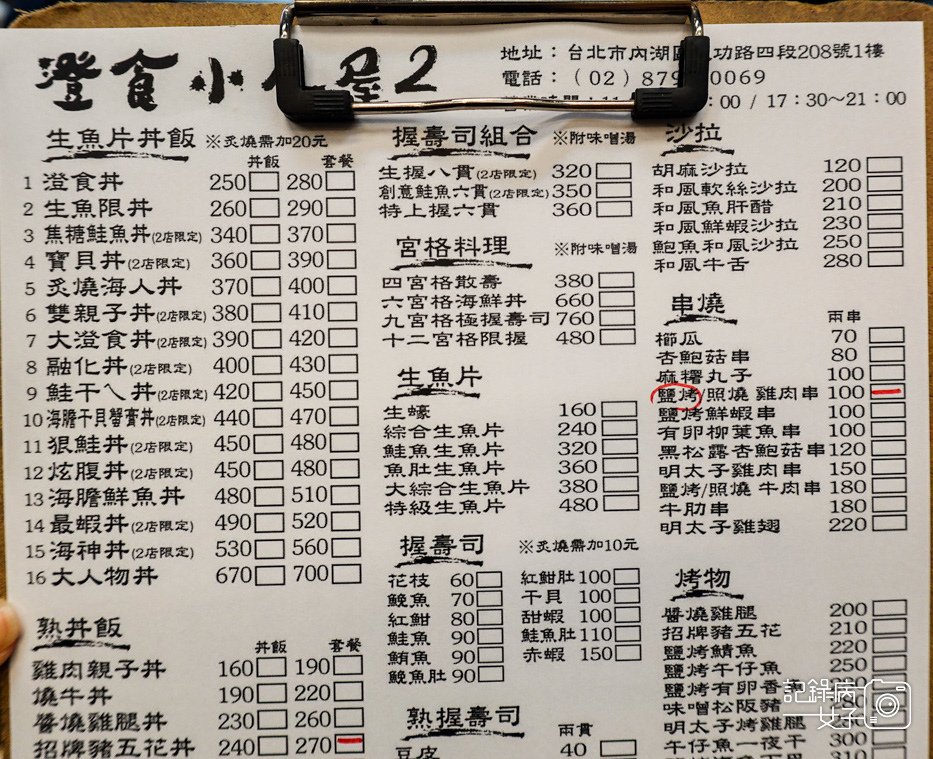 澄食小 屋2
地址：台北市內湖區 功路四段208號1樓
電話：（02）879 0069
:00 / 17：30~21：00
生魚片丼飯 ※炙燒需加20元
丼飯 套餐
1 澄食丼 250 280
2 生魚限丼 260 290
3 焦糖鮭魚丼(2店限定) 340 370
4 寶貝丼(2店限定) 360 390
5 炙燒海人丼 370 400
6 雙親子丼(2店限定) 380 410
7 大澄食丼(2店限定) 390 420
8 融化丼(2店限定) 400 430
9 鮭干ㄟ丼(2店限定) 420 450
10 海膽干貝蟹膏丼(2店限定) 440 470
11 狠鮭丼(2店限定) 450 480
12 炫腹丼(2店限定) 450 480
13 海膽鮮魚丼 480 510
14 最蝦丼(2店限定) 490 520
15 海神丼(2店限定) 530 560
16 大人物丼 670 700
熟丼飯
丼飯 套餐
雞肉親子丼 160 190
燒牛丼 190 220
醬燒雞腿丼 230 260
招牌豬五花丼 240 270
握壽司組合 ※附味噌湯
生握八貫(2店限定) 320
創意鮭魚六貫(2店限定) 350
特上握六貫 360
宮格料理 ※附味噌湯
四宮格散壽 380
六宮格海鮮丼 660
九宮格極握壽司 760
十二宮格限握 480
生魚片
生蠔 160
綜合生魚片 240
鮭魚生魚片 320
魚肚生魚片 360
大綜合生魚片 380
特級生魚片 480
握壽司 ※炙燒需加10元
花枝 60 紅魽肚 100
鮸魚 70 干貝 100
紅魽 80 甜蝦 100
鮭魚 90 鮭魚肚 110
鮪魚 90 赤蝦 150
鮸魚肚 90
熟握壽司 兩貫
豆皮 40
沙拉
胡麻沙拉 120
和風軟絲沙拉 200
和風魚肝醋 210
和風鮮蝦沙拉 230
鮑魚和風沙拉 250
和風牛舌 280
串燒 兩串
櫛瓜 70
杏鮑菇串 80
麻糬丸子 100
鹽烤/照燒 雞肉串 100
鹽烤鮮蝦串 100
有卵柳葉魚串 100
黑松露杏鮑菇串 120
明太子雞肉串 150
鹽烤/照燒 牛肉串 180
牛肋串 180
明太子雞翅 220
烤物
醬燒雞腿 200
招牌豬五花 210
鹽烤鯖魚 220
鹽烤午仔魚 250
鹽烤有卵香
味噌松阪豬
明太子烤雞腿
午仔魚一夜干 300
記錄病
女子